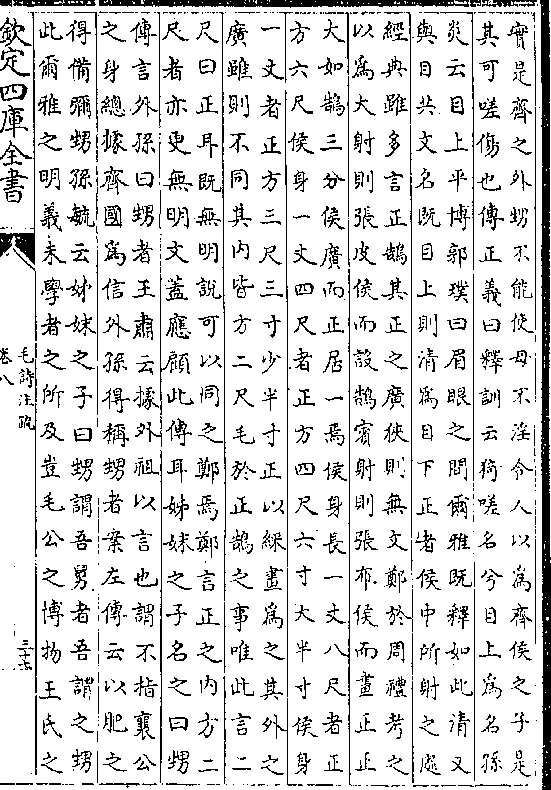 實是齊之外甥不能使母不淫令人以為齊侯之子是
其可嗟傷也傳正義曰釋訓云猗嗟名兮目上為名孫
炎云目上平博郭璞曰眉眼之間爾雅既釋如此清又
與目共文名既目上則清為目下正者侯中所射之處
經典雖多言正鵠其正之廣狹則無文鄭於周禮考之
以為大射則張皮侯而設鵠賓射則張布侯而畫正正
大如鵠三分侯廣而正居一焉侯身長一丈八尺者正
方六尺侯身一丈四尺者正方四尺六寸大半寸侯身
一丈者正方三尺三寸少半寸正以綵畫為之其外之
廣雖則不同其内皆方二尺毛於正鵠之事唯此言二
尺曰正耳既無明說可以同之鄭焉鄭言正之内方二
尺者亦更無明文蓋應顧此傳耳姊妹之子名之曰甥
傳言外孫曰甥者王肅云據外祖以言也謂不指襄公
之身總據齊國為信外孫得稱甥者案左傳云以肥之
得備彌甥孫毓云姊妹之子曰甥謂吾舅者吾謂之甥
此爾雅之明義未學者之所及豈毛公之博物王氏之
欽定四庫全書
毛詩注疏
卷八
三十六